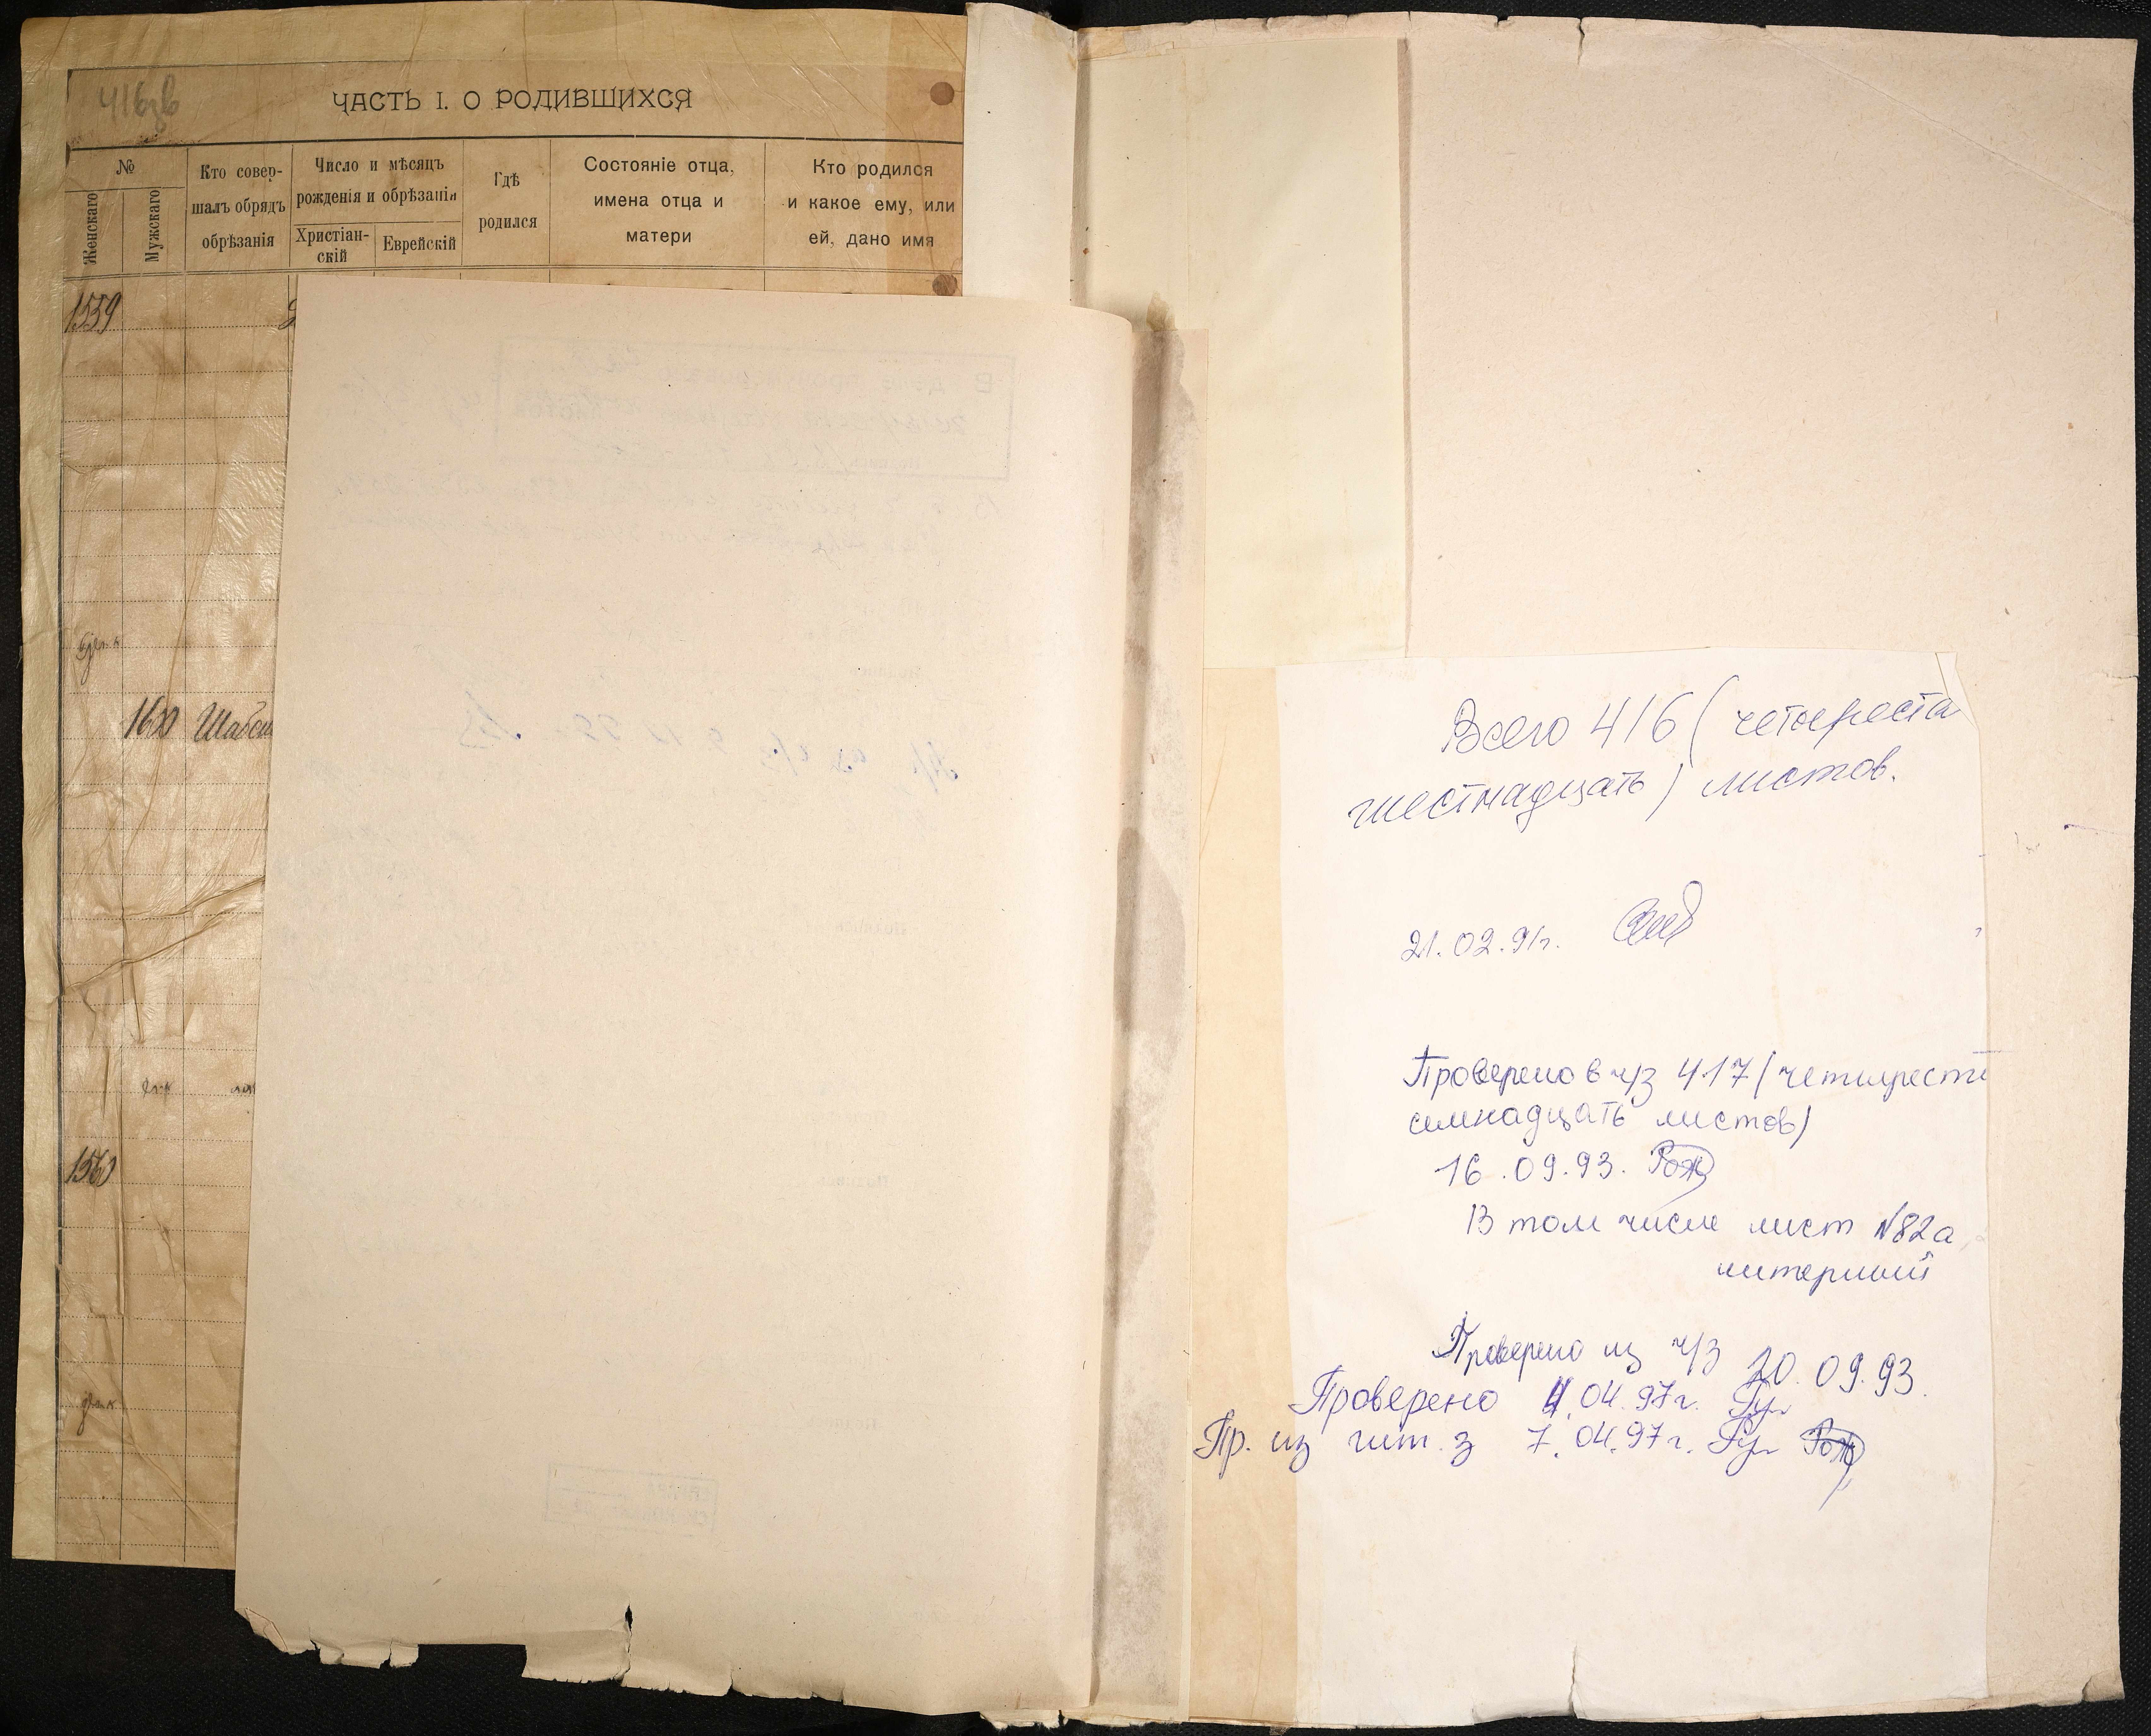 416зв
ЧАСТЬ I. О РОДИВШИХСЯ
№
Женскаго
Мужскаго
Кто совер-
шалъ обрядъ
обрѣзанія
Число и мѣсяцъ
рожденія и обрѣзанія
Христіан-
скій
Еврейскій
Гдѣ
родился
Состояніе отца,
имена отца и
матери
Кто родился
и какое ему, или
ей, дано имя
1559
1600 Шабс
1560
Всего 416 (четыреста
шестнадцать) листов.
21.02.91г.
Проверено в ч/з 417 (четыреста
семнадцать листов)
16.09.93. Рож
В том числе лист №82а
литерный
Проверено из ч/з 20.09.93.
Проверено 4.04.97г.
Пр. из чит. з 7.04.97г. Рож